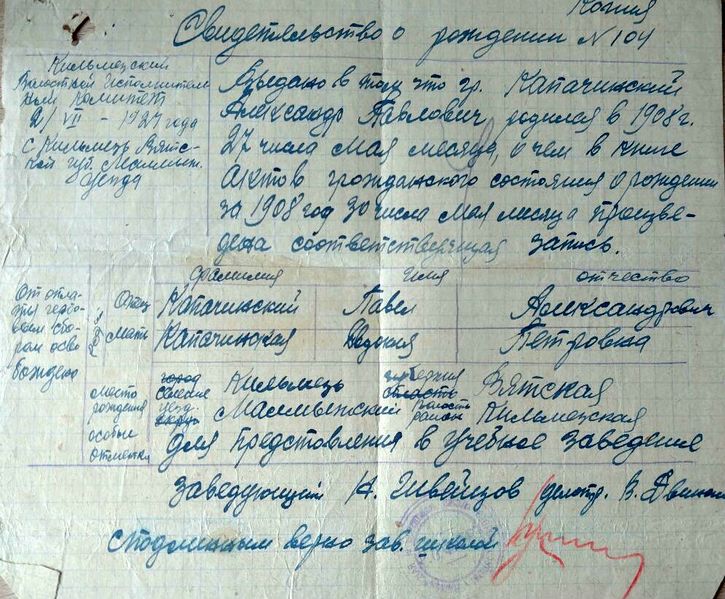 Копия
Свидетельство о рождении N 104
Кильмезский
Волостной Исполнитель
ный комитет
2/VII - 1927 года
с. Кильмезь Вятс-
кой губ. Малмыж.
уезда
Выдано в том что гр. Капачинский
Александр Павлович родился в 1908 г.
27 числа Мая месяца, о чем в книге
Актов гражданского состояния о рождении
за 1908 год 30 числа Мая месяца произве-
дена соответствующая запись.
фамилия имя отчество
От опла-
ты гербо-
вым сбо-
ром осво-
вождено
Отец Капачинский Павел Александрович
Мать Капачинская Евдокия Петровна
место
рождения
город
селение Кильмезь губерния
область Вятская
уезд
округ Малмыжский волость
район Кильмезская
особые
отметки
Для представления в учебное заведение
Заведующий А. Швейцов делопр. В. Двинин
С подлинным верно зав. школой